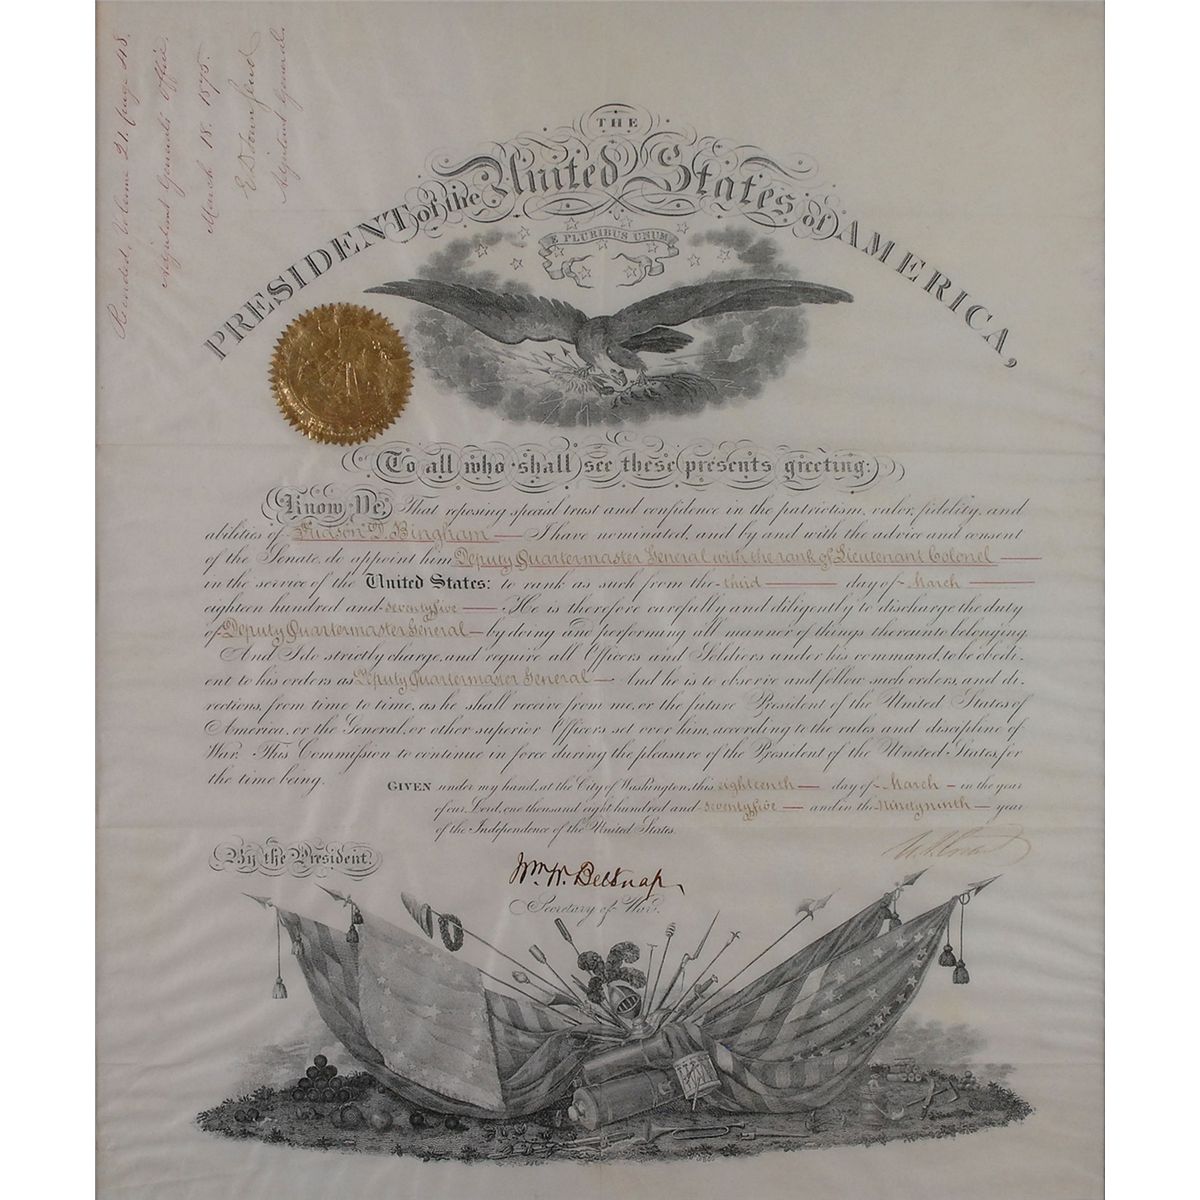 Recorded, Volume 21. page 48.
Adjutant General's Office,
March 18. 1875.
E D Townsend
Adjutant General.
THE
PRESIDENT of the United States of AMERICA,
E PLURIBUS UNUM
To all who shall see these presents greeting:
Know Ye, That reposing special trust and confidence in the patriotism, valor, fidelity, and
abilities of Judson D. Bingham I have nominated, and by and with the advice and consent
of the Senate, do appoint him Deputy Quartermaster General with the rank of Lieutenant Colonel
in the service of the United States: to rank as such from the third day of March
eighteen hundred and seventy five. He is therefore carefully and diligently to discharge the duty
of Deputy Quartermaster General by doing and performing all manner of things thereunto belonging.
And I do strictly charge, and require all Officers and Soldiers under his command, to be obedi-
ent to his orders as Deputy Quartermaster General And he is to observe and follow such orders, and di-
rections, from time to time, as he shall receive from me, or the future President of the United States of
America, or the General, or other superior Officers set over him, according to the rules and discipline of
War. This Commission to continue in force during the pleasure of the President of the United States, for
the time being.
GIVEN under my hand, at the City of Washington, this eighteenth day of March in the year
of our Lord, one thousand eight hundred and seventy five and in the ninety ninth year
of the Independence of the United States.
U. S. Grant
By the President.
Wm. W. Belknap
Secretary of War.